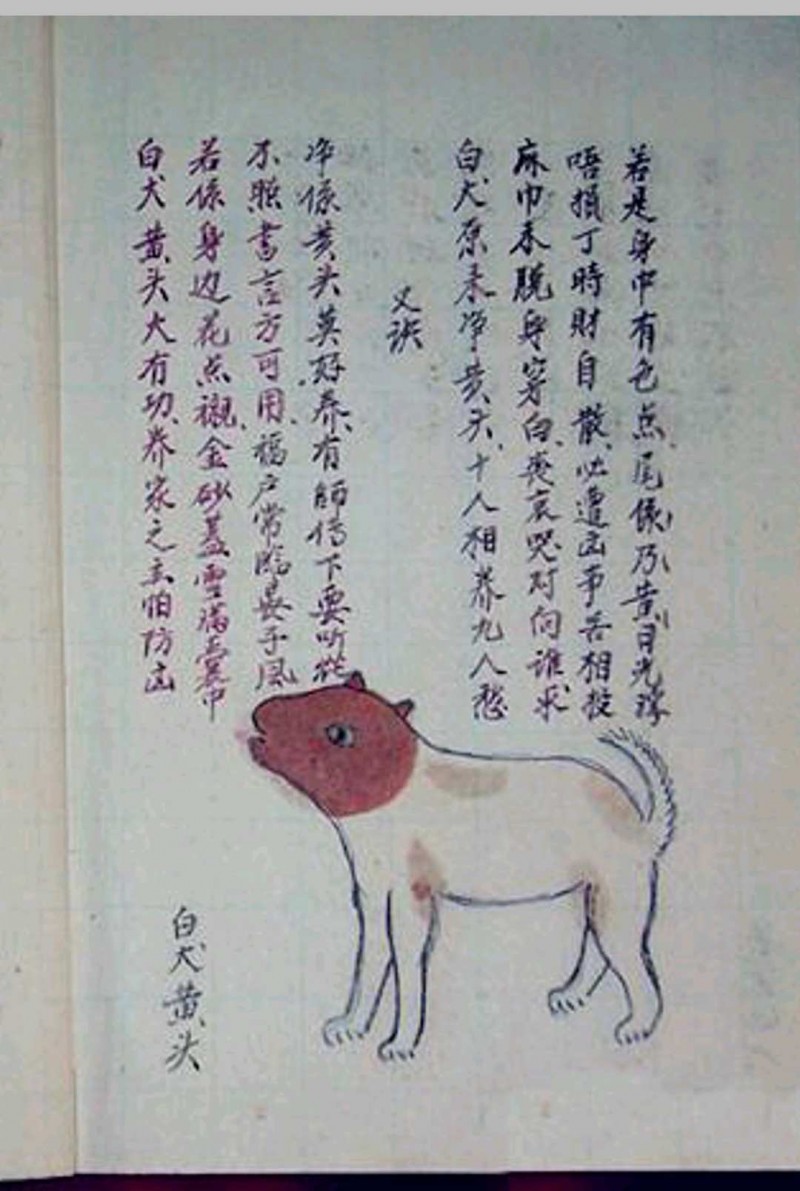 若是身中有色点、尾係乃黄目光隊
唔損丁時財自散、必遭凶事苦相投
麻巾未脱身穿白、喪哀哭对向谁求
白犬原来净黄头、十人相养九人愁
又诀
净係黄头莫好养、有師传下要听從
不照書言方可用、福户常临长子风
若係身边花点襯、金砂盖雪满囊中
白犬黄头大有功、养家之主怕防凶
白犬黄头